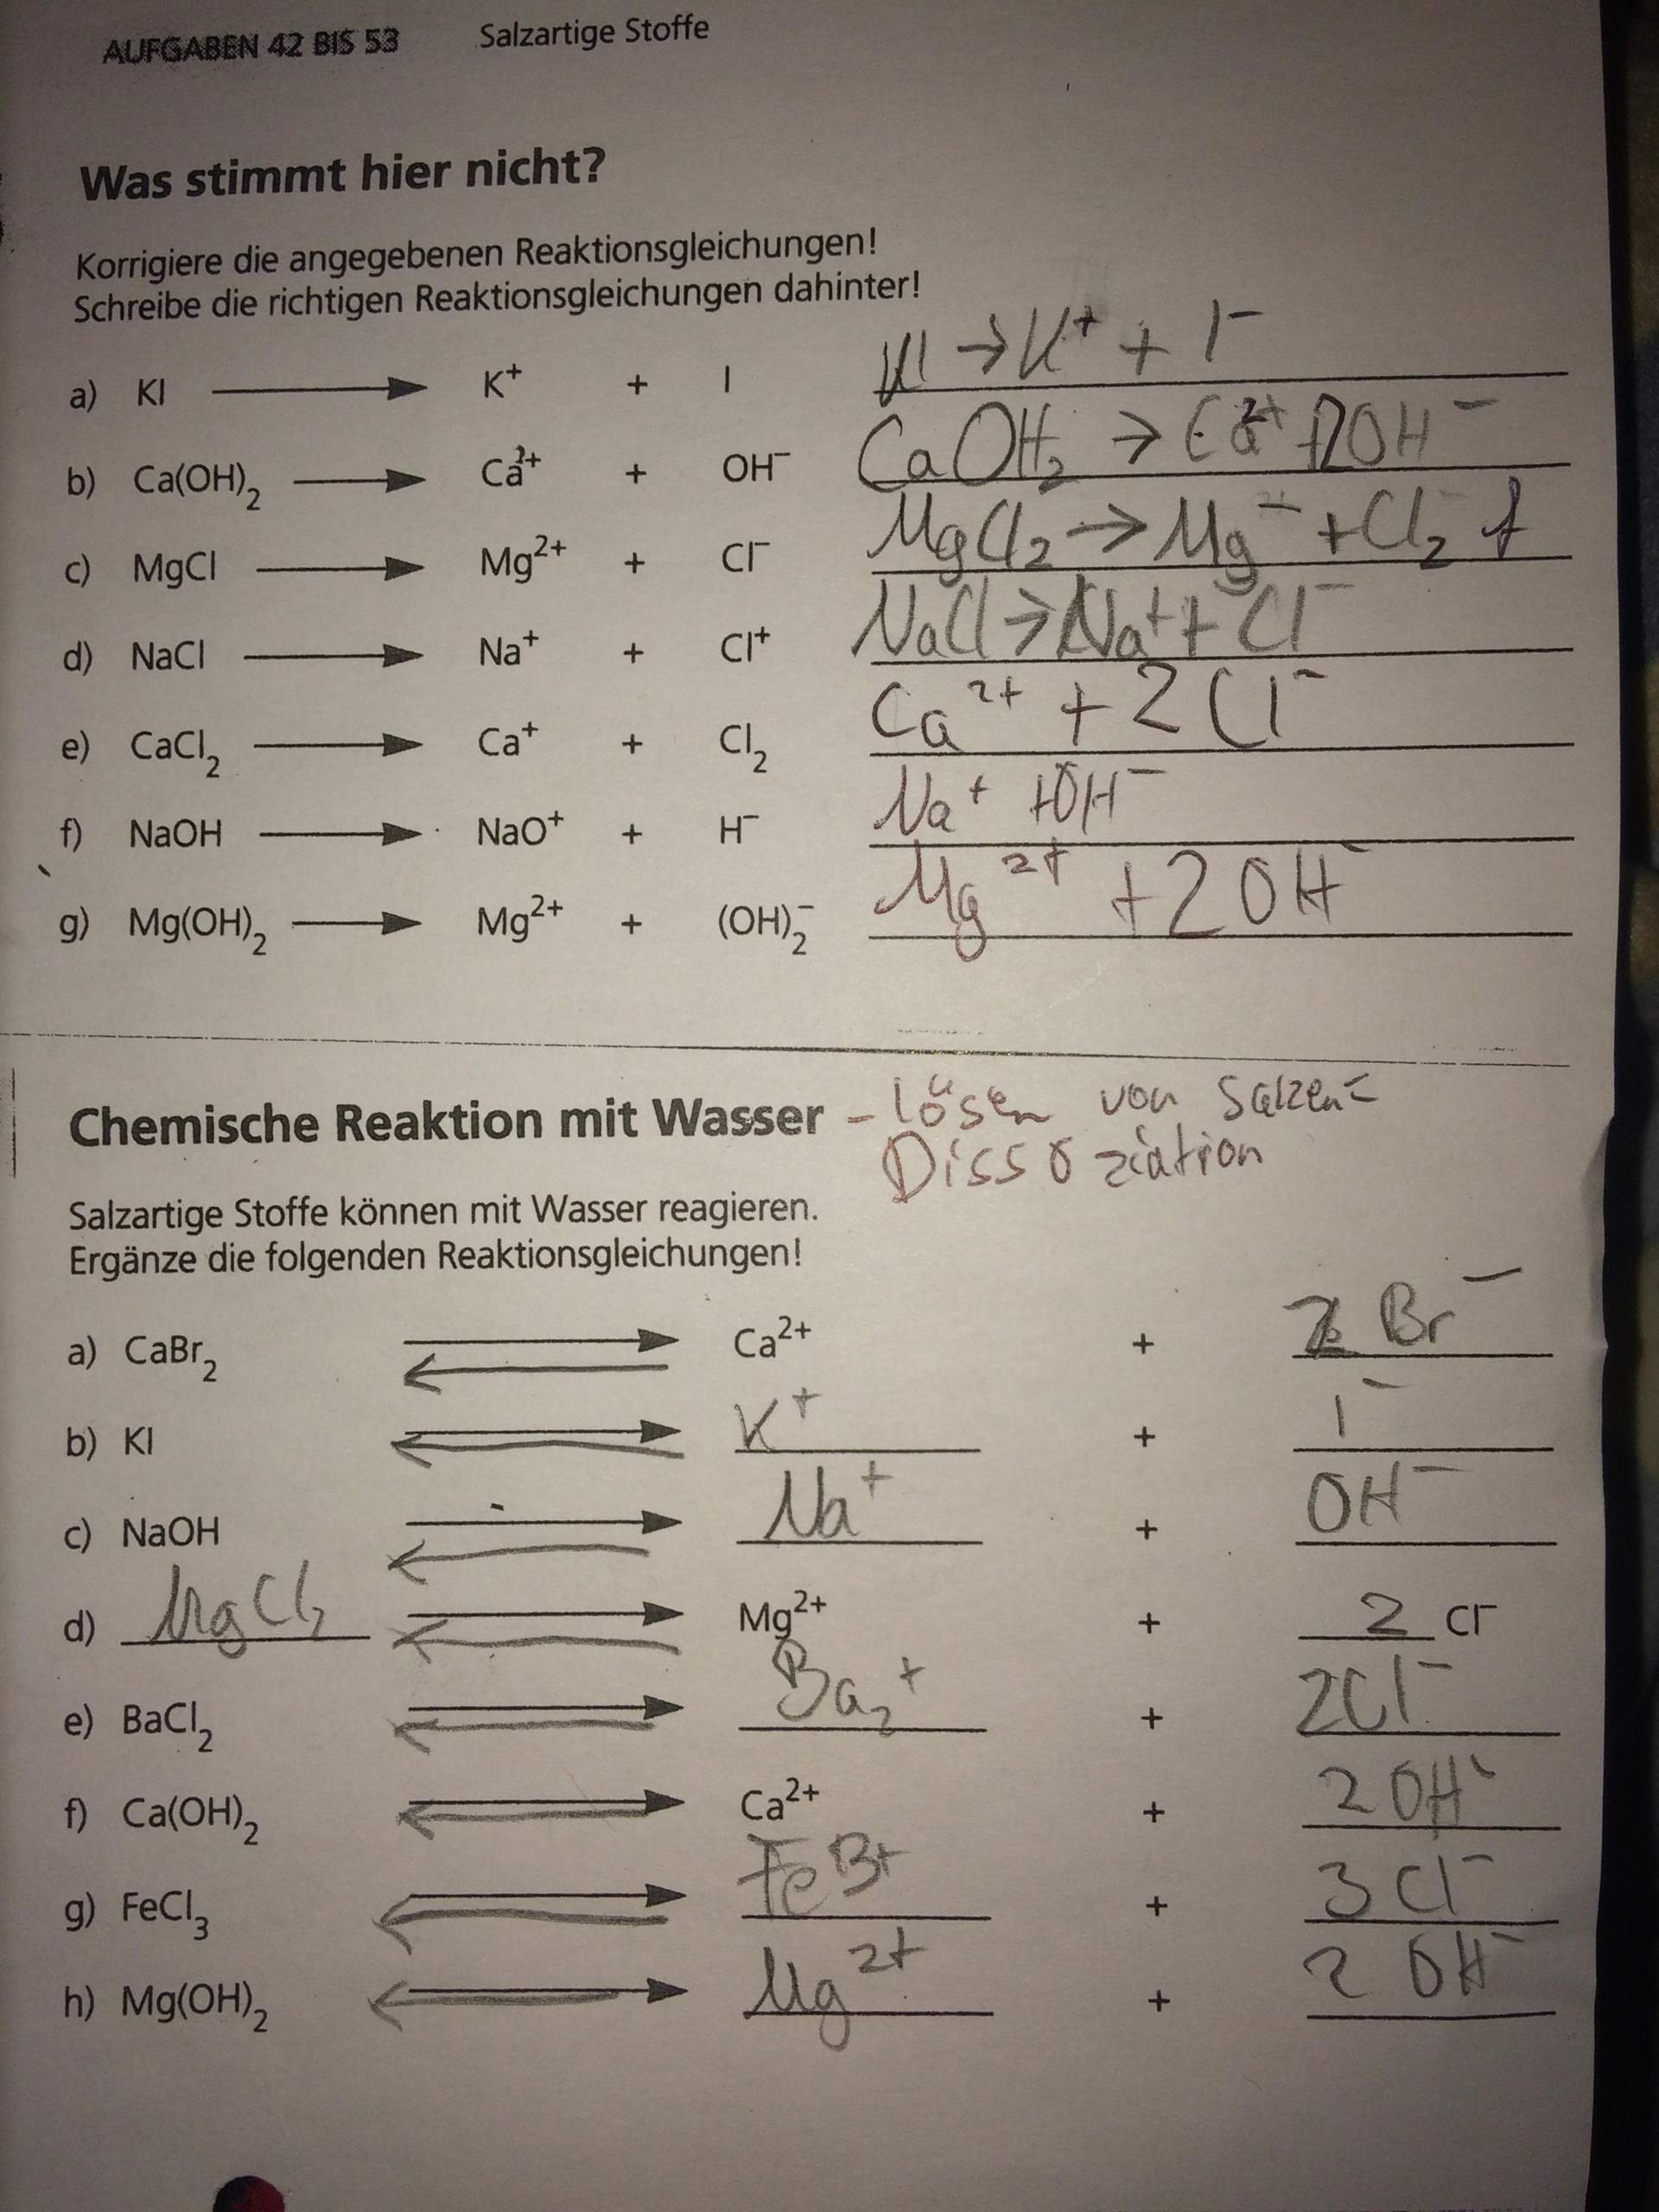 AUFGABEN 42 BIS 53 Salzartige Stoffe
Was stimmt hier nicht?
Korrigiere die angegebenen Reaktionsgleichungen!
Schreibe die richtigen Reaktionsgleichungen dahinter!
a) KI ⟶ K⁺ + I KI → K⁺ + I⁻
b) Ca(OH)₂ ⟶ Ca²⁺ + OH⁻ CaOH₂ → Ca²⁺ + 2OH⁻
c) MgCl ⟶ Mg²⁺ + Cl⁻ MgCl₂ → Mg + Cl₂
d) NaCl ⟶ Na⁺ + Cl⁺ NaCl → Na⁺ + Cl⁻
e) CaCl₂ ⟶ Ca⁺ + Cl₂ Ca²⁺ + 2Cl⁻
f) NaOH ⟶ NaO⁺ + H⁻ Na⁺ + OH⁻
g) Mg(OH)₂ ⟶ Mg²⁺ + (OH)₂⁻ Mg²⁺ + 2OH⁻
Chemische Reaktion mit Wasser – lösen von Salzen =
Dissoziation
Salzartige Stoffe können mit Wasser reagieren.
Ergänze die folgenden Reaktionsgleichungen!
a) CaBr₂ ⇌ Ca²⁺ + 2 Br⁻
b) KI ⇌ K⁺ + I⁻
c) NaOH ⇌ Na⁺ + OH⁻
d) MgCl₂ ⇌ Mg²⁺ + 2 Cl⁻
e) BaCl₂ ⇌ Ba₂⁺ + 2Cl⁻
f) Ca(OH)₂ ⇌ Ca²⁺ + 2OH⁻
g) FeCl₃ ⇌ Fe³⁺ + 3Cl⁻
h) Mg(OH)₂ ⇌ Mg²⁺ + 2 OH⁻